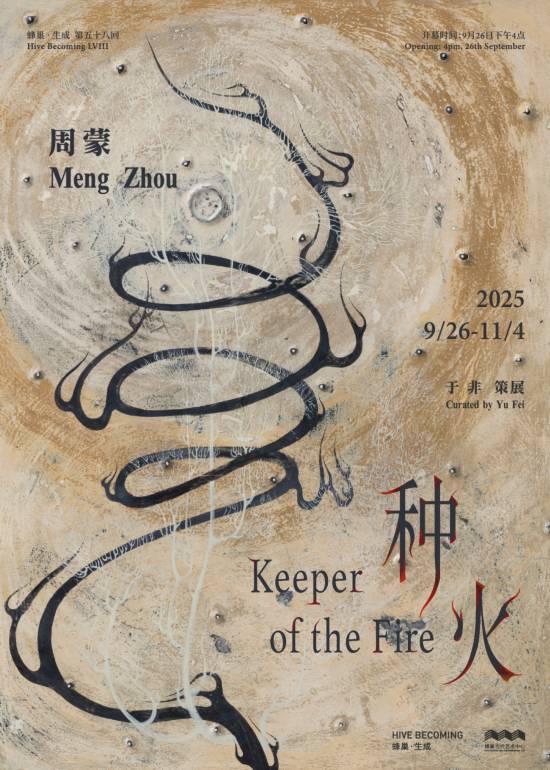 蜂巢·生成 第五十八回
Hive Becoming LVIII
开幕时间:9月26日下午4点
Opening: 4pm, 26th September
周蒙
Meng Zhou
2025
9/26-11/4
于非 策展
Curated by Yu Fei
种火
Keeper
of the Fire
HIVE BECOMING
蜂巢·生成